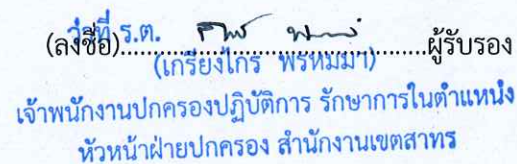 ว่าที่ ร.ต.
(ลงชื่อ)................................................ผู้รับรอง
(เกรียงไกร พรหมมา)
เจ้าพนักงานปกครองปฏิบัติการ รักษาการในตำแหน่ง
หัวหน้าฝ่ายปกครอง สำนักงานเขตสาทร